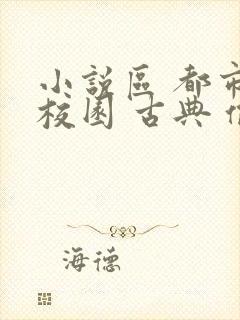 小說區 都市
校園 古典
海德